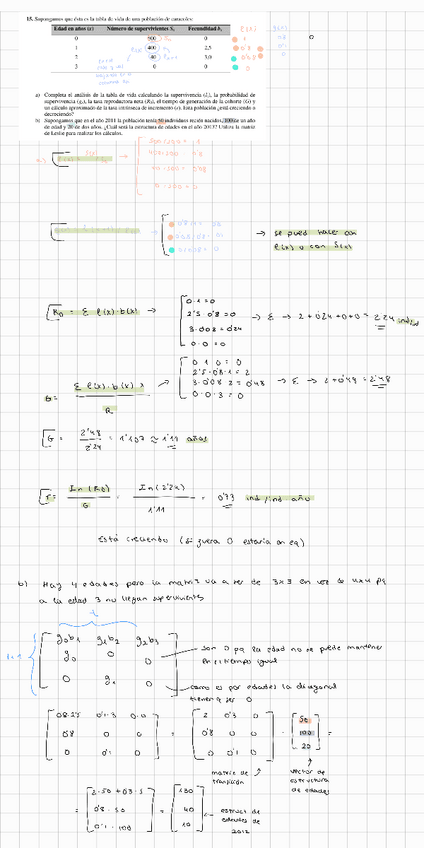 15. Supongamos que ésta es la tabla de vida de una población de caracoles:
Edad en años (x) Número de supervivientes Sx Fecundidad bx
0 500 0
1 400 2,5
2 40 3,0
3 0 0
a) Completa el análisis de la tabla de vida calculando la supervivencia (lx), la probabilidad de
supervivencia (gx), la tasa reproductora neta (R0), el tiempo de generación de la cohorte (G) y
un cálculo aproximado de la tasa intrínseca de incremento (r). Esta población ¿está creciendo o
decreciendo?
b) Supongamos que en el año 2011 la población tenía 50 individuos recién nacidos, 100 de un año
de edad y 20 de dos años. ¿Cuál será la estructura de edades en el año 2013? Utiliza la matriz
de Leslie para realizar los cálculos.
a)
→ se pued hacer con
l(x) o con S(x)
R0 = Σ l(x)·b(x) →
0·1 = 0
2'5·0'8 = 0
3·0'08 = 0'24
0·0 = 0
→ Σ → 2+0'24+0+0 = 2'24
G = Σ l(x)·b(x)·x / R
0·1·0 = 0
2'5·0'8·1 = 2
3·0'08·2 = 0'48
0·0·3 = 0
→ Σ → 2+0'48 = 2'48
G = 2'48 / 2'24 = 1'107 ≈ 1'11 años
r = ln (R0) / G = ln (2'24) / 1'11 = 0'73 ind/ind año
está creciendo (si fuera 0 estaría en eq)
b) Hay 4 edades pero la matriz va a ser de 3x3 en vez de 4x4 pq
a la edad 3 no llegan supervivientes
t
t+1
g0b1 g1b2 g2b3
g0 0 0
0 g1 0
son 0 pq la edad no se puede mantener
en el tiempo igual
como es por edades la diagonal
tiene q ser 0
0'8·2'5 0'1·3 0·0
0'8 0 0
0 0'1 0
=
2 0'3 0
0'8 0 0
0 0'1 0
·
50
100
20
=
matriz de
transición
vector de
estructura
de edades
=
2·50 + 0'3·
0'8·50
0'1·100
=
130
40
10
estruct de
edades de
2012